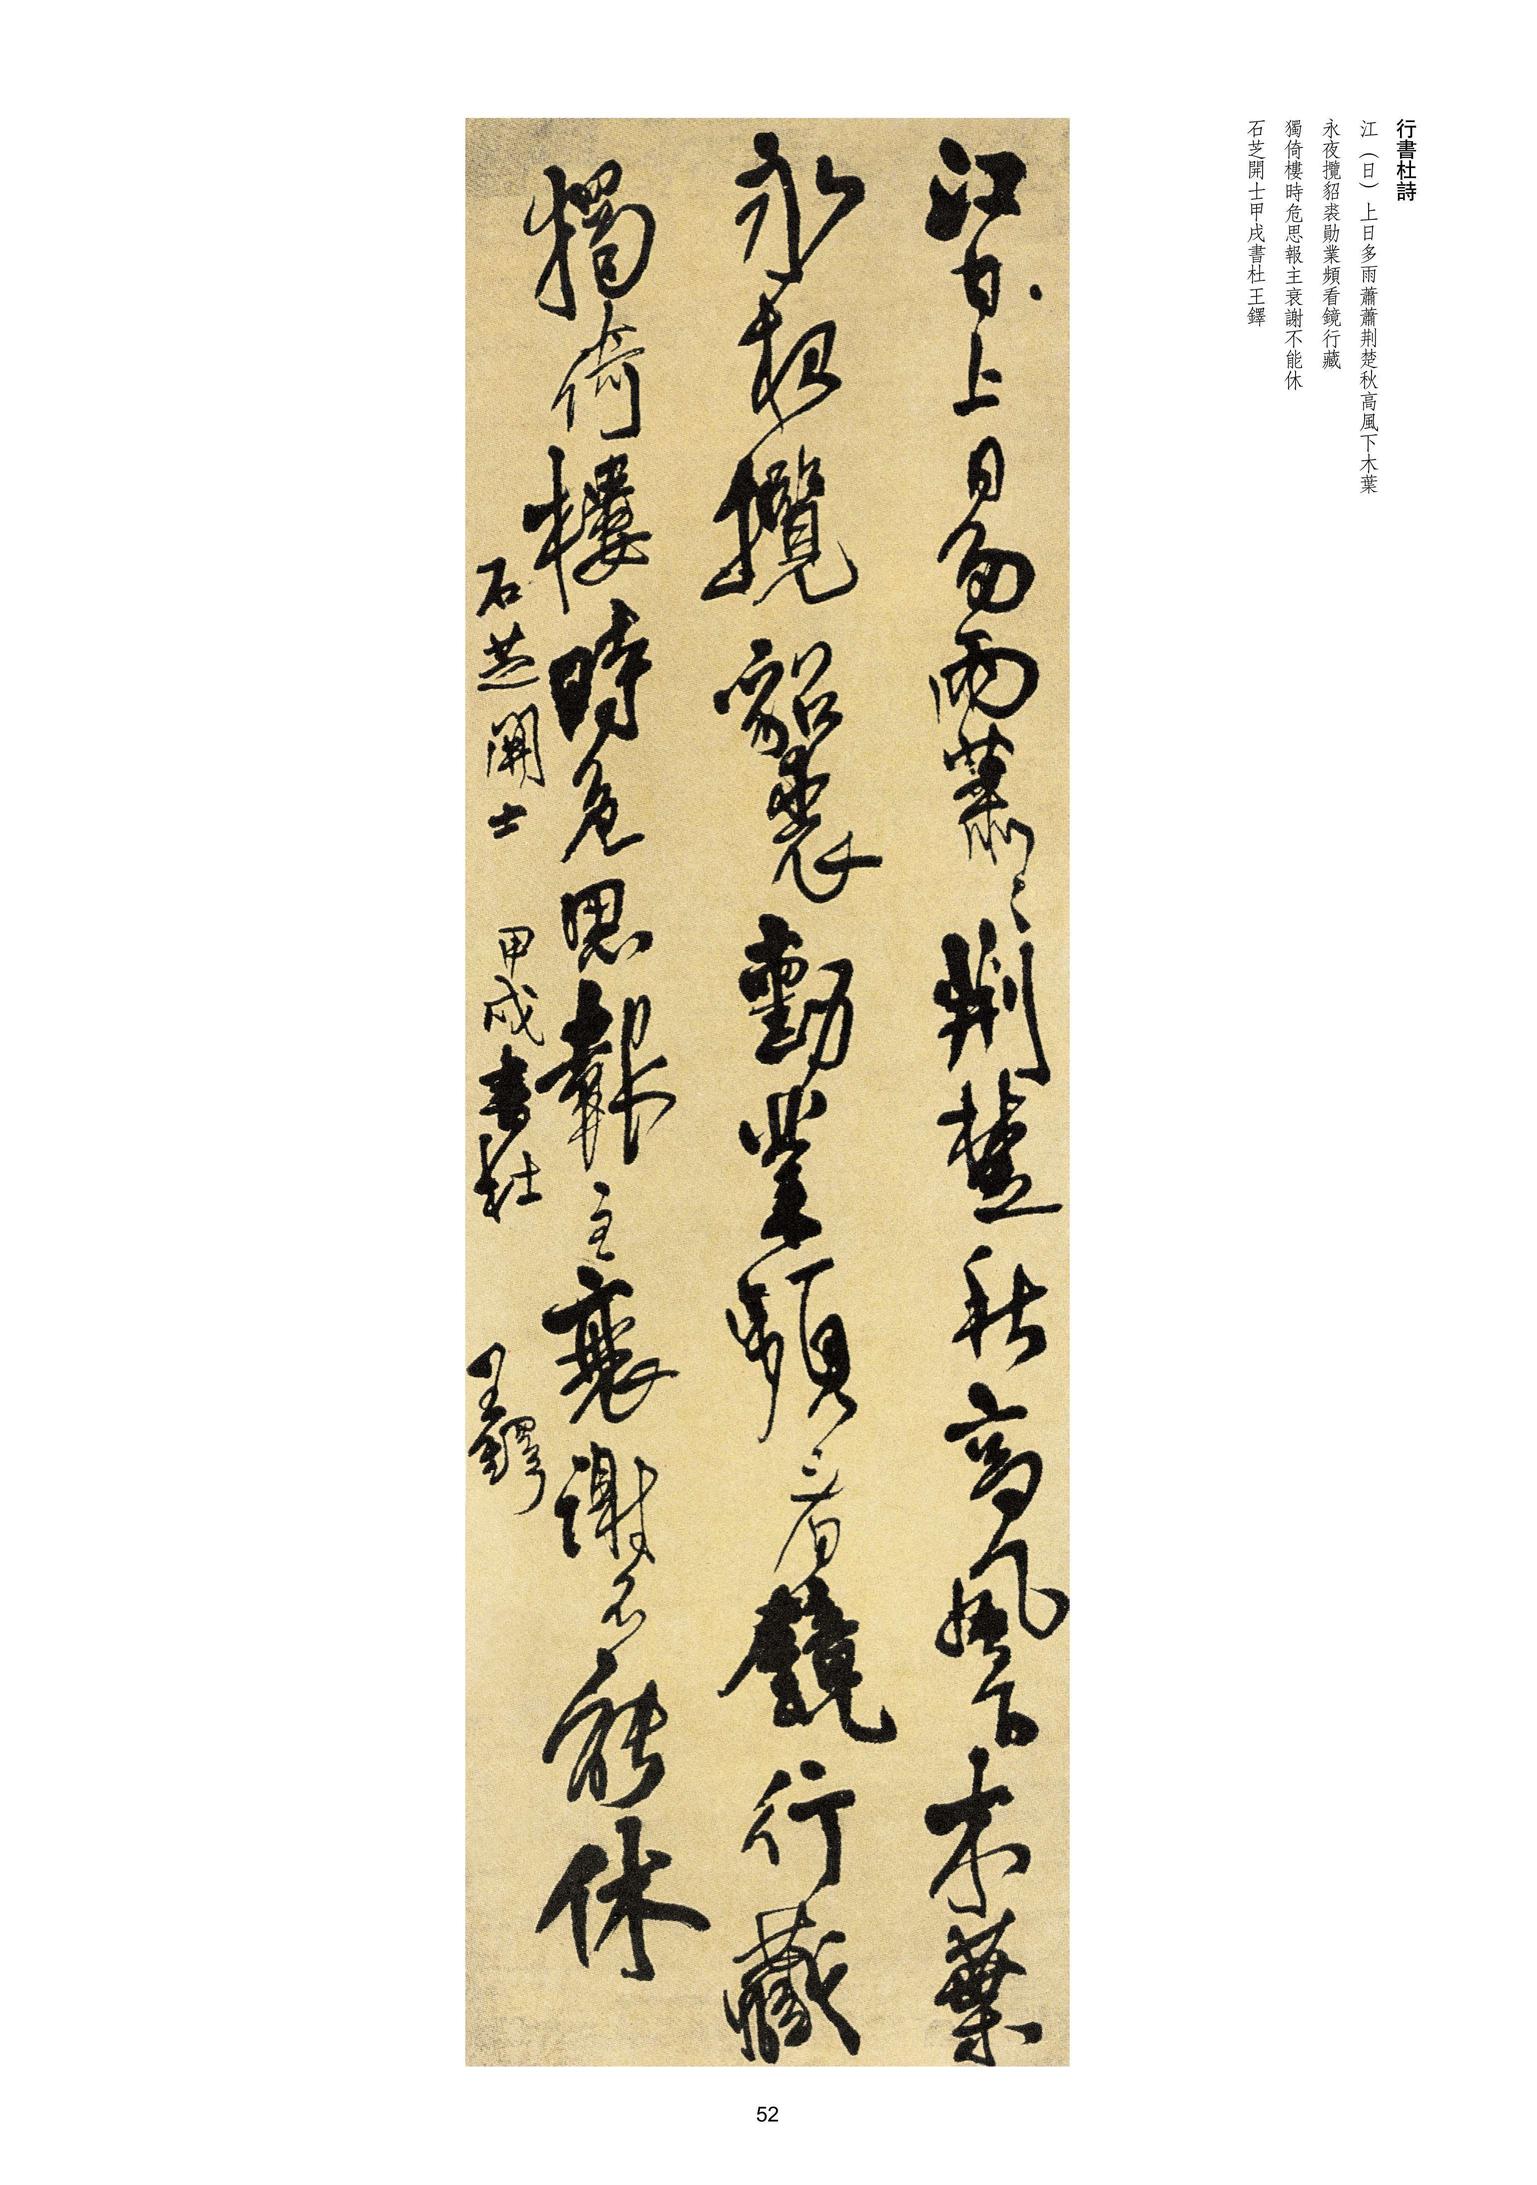 行書杜詩
江（日）上日多雨蕭蕭荆楚秋高風下木葉
永夜攬貂裘勛業頻看鏡行藏
獨倚樓時危思報主衰謝不能休
石芝開士甲戌書杜王鐸
江日上日多雨蕭〻荆楚秋高風下木葉
永夜攬貂裘勳業頻看鏡行藏
獨倚樓時危思報主衰謝不能休
石芝開士 甲戌書杜 王鐸
52